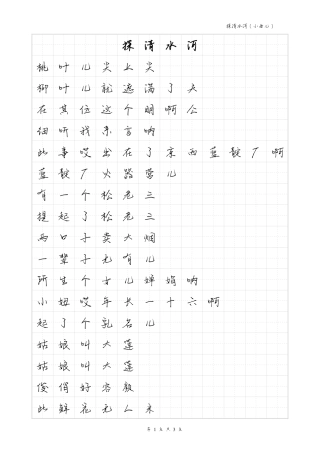 探清水河(小楷 01)
探清水河
桃叶儿尖上尖
柳叶儿就遮满了天
在其位这个明啊公
细听我来言呐
此事哎出在了京西蓝靛厂啊
蓝靛厂火器营儿
有一个松老三
提起了松老三
两口子卖大烟
一辈子无有儿
所生个女儿婵娟呐
小妞哎年长一十六啊
起了个乳名儿
姑娘叫大莲
姑娘叫大莲
俊俏好容颜
此鲜花无人采
第 1 页 共 3 页